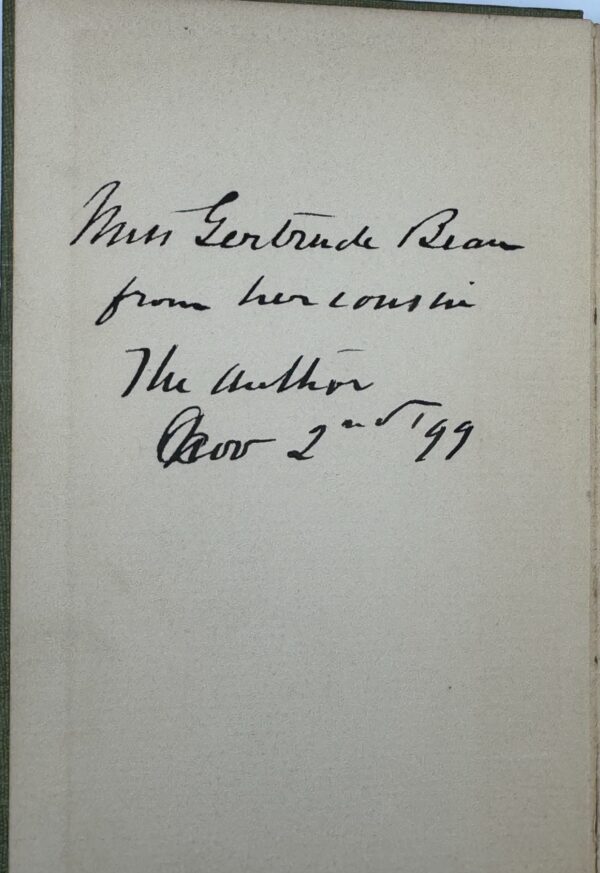 Miss Gertrude Bean
from her cousin
The Author
Nov 2nd '99